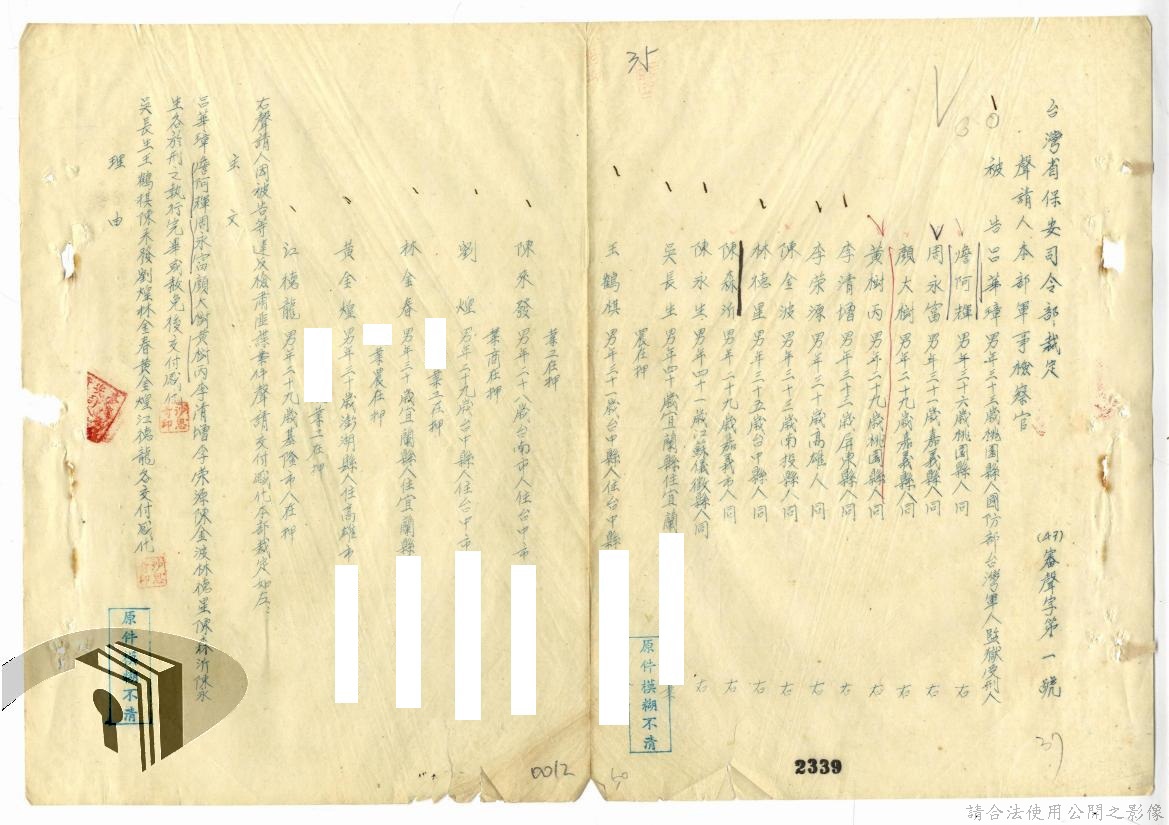 台灣省保安司令部裁定
(47)審聲字第一號
聲請人 本部軍事檢察官
被告 呂華璋 男年三十三歲桃園縣人國防部台灣軍人監獄受刑人
詹阿輝 男年三十六歲桃園縣人同右
周永富 男年三十一歲嘉義縣人同右
顏大樹 男年二十九歲嘉義縣人同右
黃樹丙 男年二十九歲桃園縣人同右
李清增 男年三十三歲屏東縣人同右
李荣源 男年三十歲高雄人同右
陳金波 男年三十二歲南投縣人同右
林德星 男年三十五歲台中縣人同右
陳森沂 男年二十九歲嘉義市人同右
陳永生 男年四十一歲江蘇儀徵縣人同右
吳長生 男年四十歲宜蘭縣住宜蘭
業
農在押
王鶴棋 男年三十一歲台中縣人住台中縣
業工在押
陳來發 男年二十八歲台南市人住台中市
業商在押
劉煌 男年二十九歲台中縣人住台中市
業工在押
林金春 男年三十歲宜蘭縣人住宜蘭縣
業農在押
黃金煌 男年三十歲澎湖縣人住高雄市
業工在押
江德龍 男年二十九歲基隆市人在押
右聲請人因被告等違反檢肅匪諜案件聲請交付感化本部裁定如左：
主文
呂華璋詹阿輝周永富顏大樹黃樹丙李清增李荣源陳金波林德星陳森沂陳永
生各於刑之執行完畢或赦免後交付感化
吳長生王鶴棋陳來發劉煌林金春黃金煌江德龍各交付感化
理由
原件模糊不清
原件模糊不清
35
30
37
0012
2339
請合法使用公開之影像